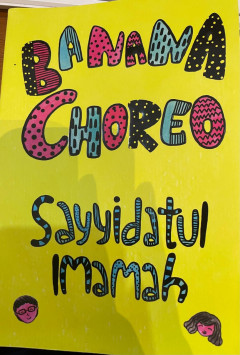 BANANA
CHOREO
Sayyidatul
Imamah